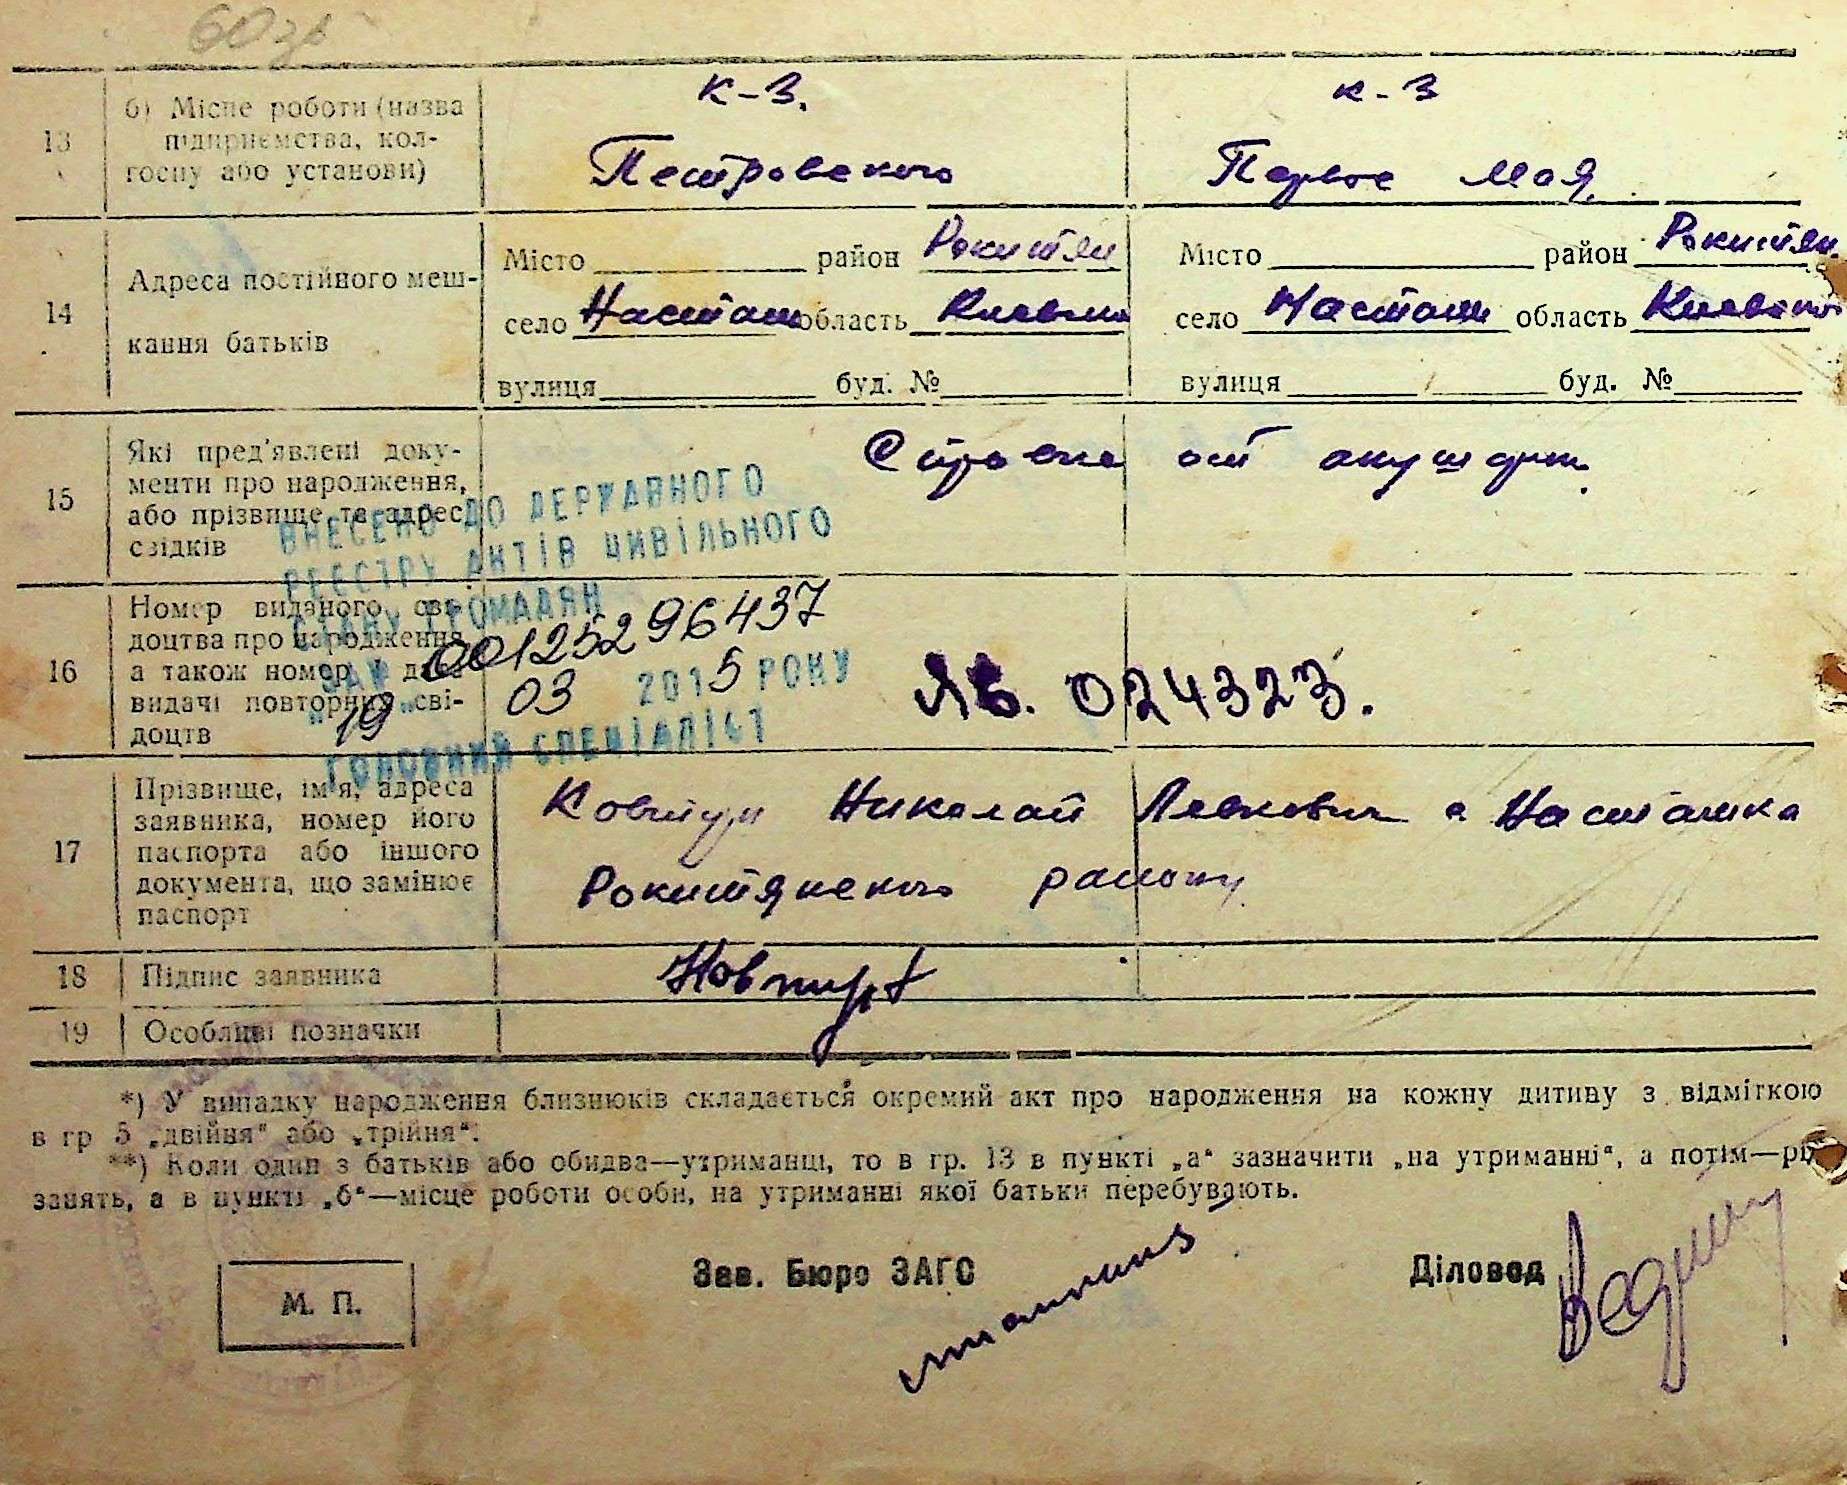 б) Місце роботи (назва
підприємства, кол-
госпу або установи)
13
К-З.
Петровского
к-з
Первое Мая
14
Адреса постійного меш-
кання батьків
Місто район Рокитян
село Насташ область Киевск
вулиця буд. №
Місто район Рокитян
село Насташ область Киевской
вулиця буд. №
15
Які пред'явлені доку-
менти про народження,
або прізвище та адрес
свідків
Справка от акушерки
ВНЕСЕНО ДО ДЕРЖАВНОГО
РЕЄСТРУ АКТІВ ЦИВІЛЬНОГО
СТАНУ ГРОМАДЯН
ЗА № 00125296437
"19" 03 2015 РОКУ
ГОЛОВНИЙ СПЕЦІАЛІСТ
16
Номер виданого сві-
доцтва про народження
а також номер і дата
видачі повторних сві-
доцтв
ЯБ. 024323.
17
Прізвище, ім'я, адреса
заявника, номер його
паспорта або іншого
документа, що замінює
паспорт
Ковтун Николай Левкович с Насташка
Рокитянского району
18
Підпис заявника
Ковтун
19
Особливі позначки
*) У випадку народження близнюків складається окремий акт про народження на кожну дитину з відміткою
в гр 5 „двійня" або „трійня".
**) Коли один з батьків або обидва—утриманці, то в гр. 13 в пункті „а" зазначити „на утриманні", а потім—рід
занять, а в пункті „б"—місце роботи особи, на утриманні якої батьки перебувають.
М. П.
Зав. Бюро ЗАГС
Діловод